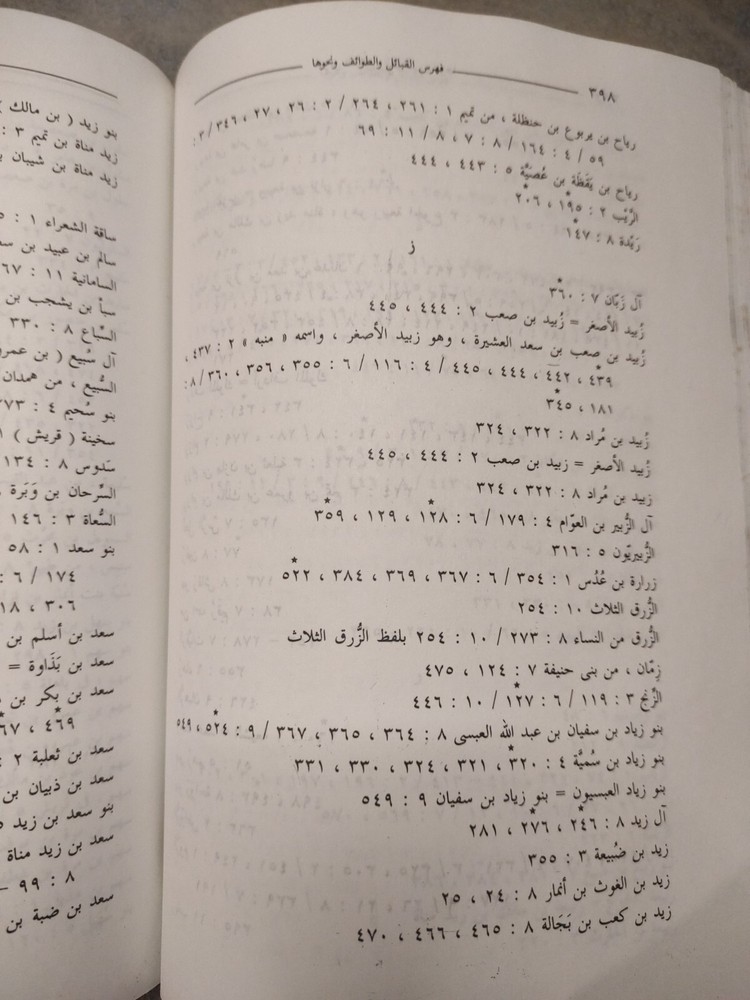 ٣٩٨
فهرس القبائل والطوائف ونحوها
رياح بن يربوع بن حنظلة ، من تميم ١ : ٢٦١ ، ٢٦٤ / ٢ : ٢٦ ، ٢٧ ، ٣٤٦ / ٣ :
٥٩ / ٤ : ١٦٤ / ٨ : ٧ ، ٨ / ١١ : ٦٩
رياح بن يَقَظَة بن عُصَيَّة ٥ : ٤٤٣ ، ٤٤٤
الرَّيْب ٢ : ١٩٥* ، ٢٠٦*
رَيْدة ٨ : ١٤٧*
ز
آل زَبّان ٧ : ٣٦٠*
زُبيد الأصغر = زُبيد بن صعب ٢ : ٤٤٤ ، ٤٤٥
زُبيد بن صعب بن سعد العشيرة ، وهو زبيد الأصغر ، واسمه « منبه » ٢ : ٤٣٧ ،
٤٣٩* ، ٤٤٢ ، ٤٤٤ ، ٤٤٥ / ٤ : ١١٦ / ٦ : ٣٥٥ ، ٣٥٦ ، ٣٦٠* / ٨ :
١٨١ ، ٣٤٥*
زُبيد بن مُراد ٨ : ٣٢٢ ، ٣٢٤
زُبيد الأصغر = زبيد بن صعب ٢ : ٤٤٤ ، ٤٤٥
زبيد بن مُراد ٨ : ٣٢٢ ، ٣٢٤
آل الزُّبير بن العوّام ٤ : ١٧٩ / ٦ : ١٢٨* ، ١٢٩ ، ٣٥٩*
الزُّبيريّون ٥ : ٣١٦
زرارة بن عُدُس ١ : ٣٥٤ / ٦ : ٣٦٧ ، ٣٦٩ ، ٣٨٤ ، ٥٢٢*
الزُّرق الثلاث ١٠ : ٢٥٤
الزُّرق من النساء ٨ : ٢٧٣ / ١٠ : ٢٥٤ بلفظ الزُّرق الثلاث
زِمّان ، من بنى حنيفة ٧ : ١٢٤ ، ٤٧٥
الزِّنج ٣ : ١١٩ / ٦ : ١٢٧* / ١٠ : ٤٤٦
بنو زياد بن سفيان بن عبد الله العبسى ٨ : ٣٦٤ ، ٣٦٥ ، ٣٦٧ / ٩ : ٥٢٤* ، ٥٤٩
بنو زياد بن سُميَّة ٤ : ٣٢٠* ، ٣٢١ ، ٣٢٤ ، ٣٣٠ ، ٣٣١
بنو زياد العبسيون = بنو زياد بن سفيان ٩ : ٥٤٩
آل زيد ٨ : ٢٤٦* ، ٢٧٦* ، ٢٨١
زيد بن ضُبيعة ٣ : ٣٥٥
زيد بن الغوث بن أنمار ٨ : ٢٤ ، ٢٥
زيد بن كعب بن بَجَالة ٨ : ٤٦٥ ، ٤٦٦ ، ٤٧٠
بنو زيد ( بن مالك )
زيد مناة بن تميم ٣ :
زيد مناة بن شيبان
ساقة الشعراء ١ :
سالم بن عبيد بن
السامانية ١١ :
سبأ بن يشجب بن
السِّباع ٨ : ٣٣٠
آل سُبيع ( بن عمرو
السَّبيع ، من همدان
بنو سُحيم ٤ : ٢٧٣
سخينة ( قريش )
سَدوس ٨ : ١٣٤
السِّرحان بن وَبَرة
السُّعاة ٣ : ١٤٦
بنو سعد ١ : ٥٨
١٧٤ / ٦ :
٣٠٦ ،
سعد بن أسلم بن
سعد بن بَذَاوة =
سعد بن بكر بن
٤٦٩* ،
سعد بن ثعلبة ٢
سعد بن ذبيان بن
بنو سعد بن زيد
سعد بن زيد مناة
٨ : ٩٩ –
سعد بن ضبة بن